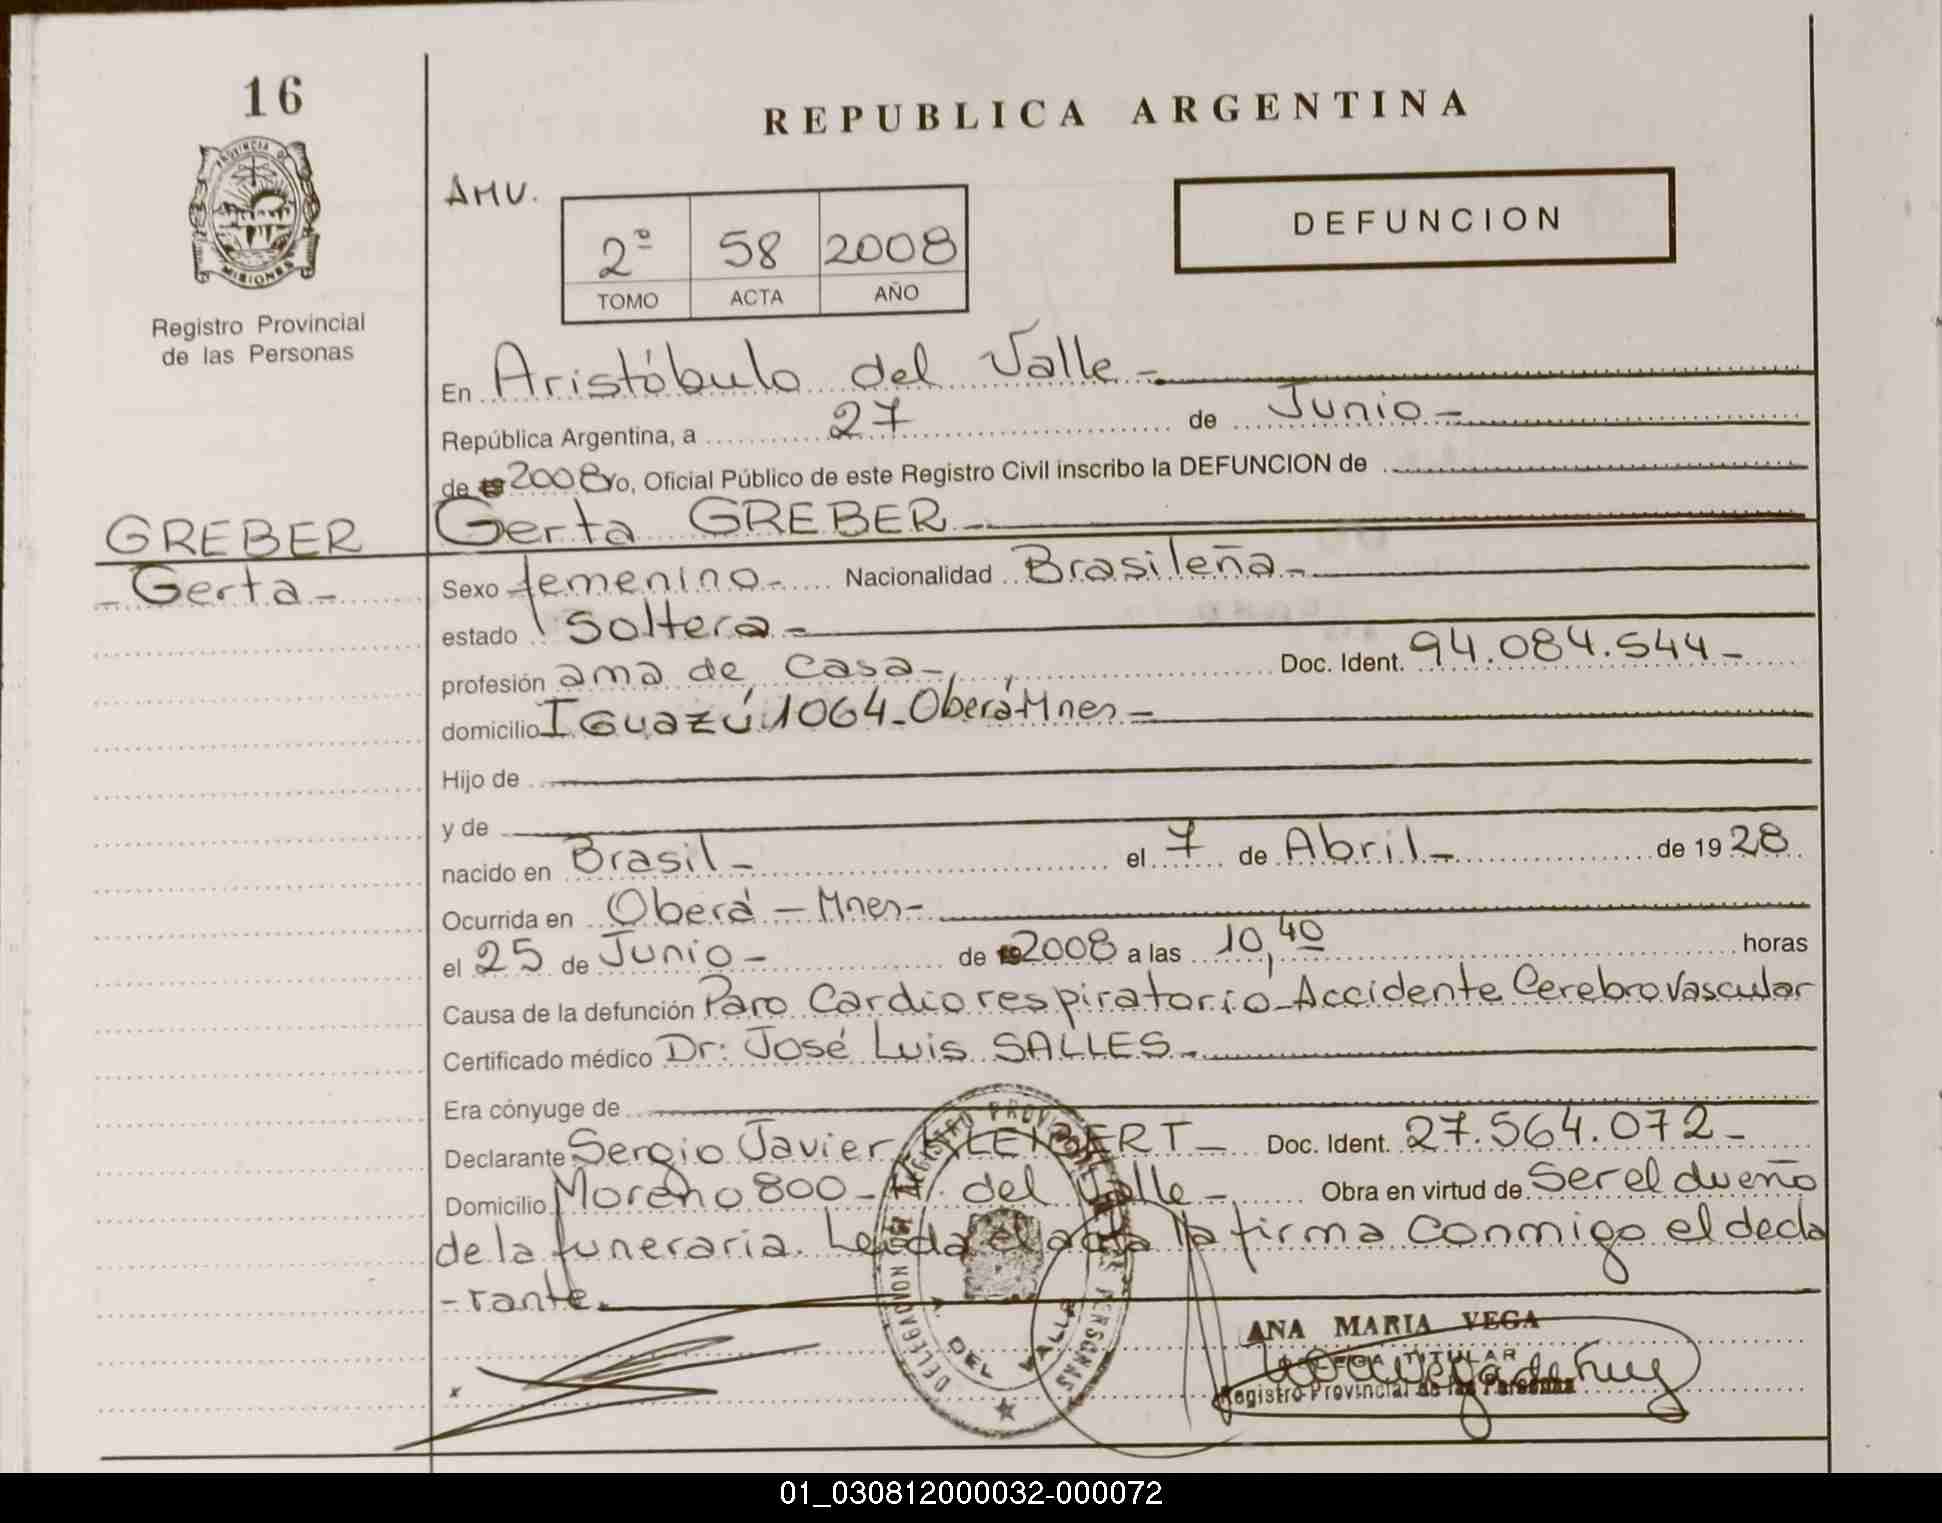 16
PROVINCIA DE
MISIONES
Registro Provincial
de las Personas
REPUBLICA ARGENTINA
AMV.
2º 58 2008
TOMO ACTA AÑO
DEFUNCION
En Aristóbulo del Valle -
República Argentina, a 27 de Junio -
de 19 2008 Yo, Oficial Público de este Registro Civil inscribo la DEFUNCION de
GREBER
- Gerta -
Gerta GREBER -
Sexo femenino - Nacionalidad Brasileña -
estado Soltera -
profesión ama de casa - Doc. Ident. 94.084.544 -
domicilio Iguazú 1064 - Oberá - Mnes -
Hijo de
y de
nacido en Brasil - el 7 de Abril - de 19 28
Ocurrida en Oberá - Mnes -
el 25 de Junio - de 19 2008 a las 10,40 horas
Causa de la defunción Paro Cardiorespiratorio - Accidente Cerebro Vascular
Certificado médico Dr: José Luis SALLES -
Era cónyuge de
Declarante Sergio Javier - Doc. Ident. 27.564.072 -
Domicilio Moreno 800 - A. del Valle - Obra en virtud de Ser el dueño
de la funeraria. Leída el acta la firma conmigo el decla
- rante.
DELEGACION DEL REGISTRO PROVINCIAL DE LAS PERSONAS
A. DEL VALLE
ANA MARIA VEGA
TITULAR
Registro Provincial de las Personas
01_030812000032-000072